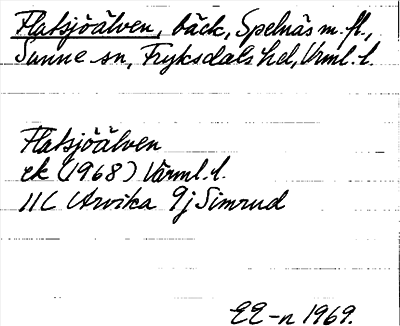 Flatsjöälven, bäck, Spelnäs m.fl.,
Sunne sn, Fryksdals hd, Vrml. l.
Flatsjöälven
ek (1968) Värml. l.
11C Arvika 9j Simrud
EE-n 1969.